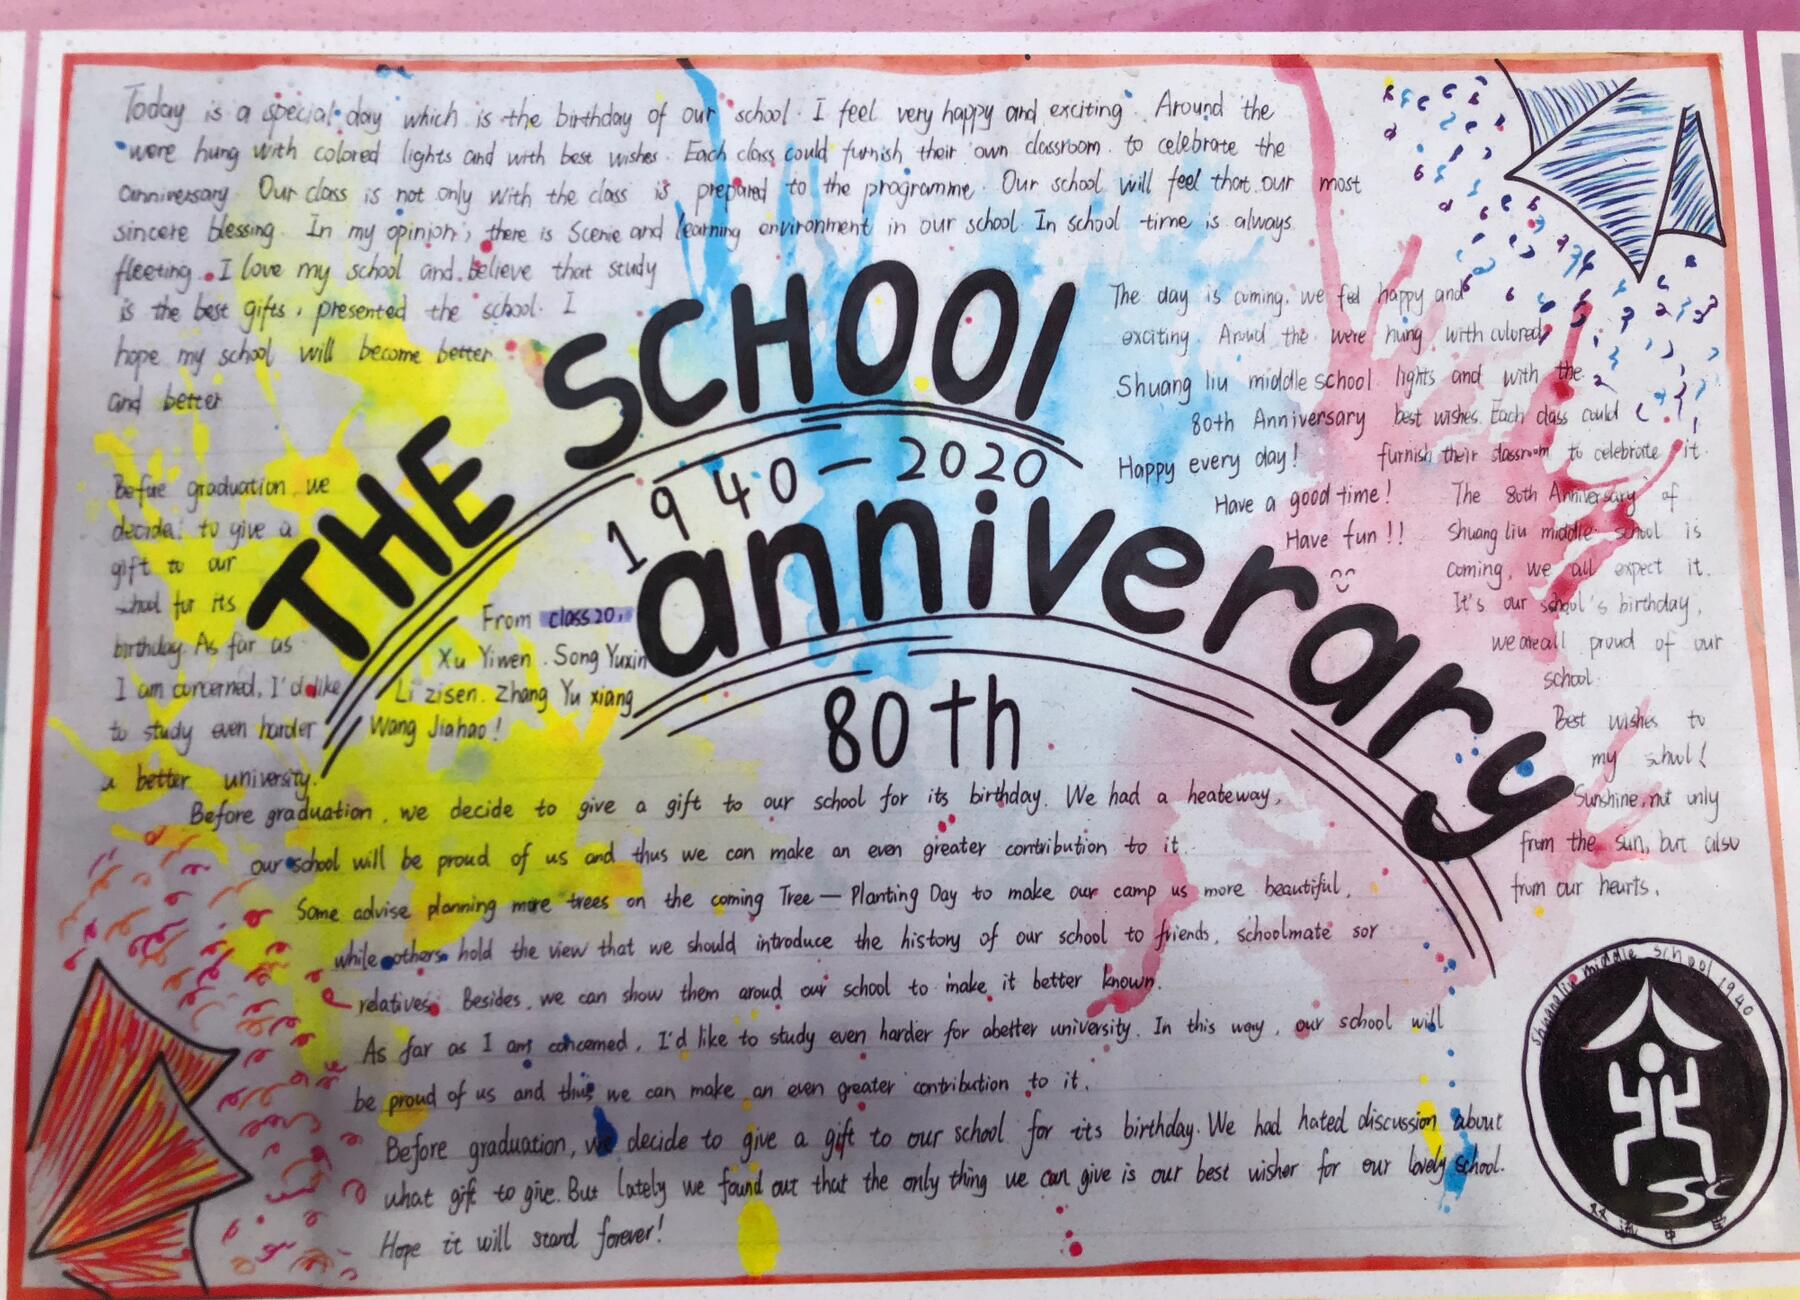 Today is a special day which is the birthday of our school. I feel very happy and exciting. Around the
were hung with colored lights and with best wishes. Each class could furnish their own classroom. to celebrate the
anniversary. Our class is not only with the class is prepared to the programme. Our school will feel that our most
sincere blessing. In my opinion, there is Scenie and learning environment in our school. In school time is always
fleeting. I love my school and believe that study
is the best gifts, presented the school. I
hope my school will become better
and better
THE SCHOOl
1940-2020
anniverary
80th
Before graduation, we
decida: to give a
gift to our
school for its
birthday. As far as
I am concerned, I'd like
to study even harder
a better university.
From class 20,
Xu Yiwen. Song Yuxin
Li zisen. Zhang Yu xiang
Wang Jiahao!
The day is coming. we feel happy and
exciting. Aroud the were hung with colored
Shuang liu middle school
80th Anniversary
Happy every day!
Have a good time!
Have fun!!
lights and with the
best wishes. Each class could
furnish their classroom to celebrate it.
The 80th Anniversary of
Shuang liu middle school is
coming, we all expect it.
It's our school's birthday,
we are all proud of our
school.
Best wishes to
my school!
Sunshine, not only
from the sun, but also
from our hearts.
Before graduation, we decide to give a gift to our school for its birthday. We had a heateway,
our school will be proud of us and thus we can make an even greater contribution to it.
Some advise planning more trees on the coming Tree — Planting Day to make our camp us more beautiful,
while others hold the view that we should introduce the history of our school to friends, schoolmate sor
relatives. Besides, we can show them aroud our school to make it better known.
As far as I am concerned, I'd like to study even harder for abetter university. In this way, our school will
be proud of us and thus we can make an even greater contribution to it.
Before graduation, we decide to give a gift to our school for its birthday. We had hated discussion about
what gift to give. But lately we found out that the only thing we can give is our best wisher for our lovely school.
Hope it will stand forever!
Shuangliu middle school 1940
SC
双流中学